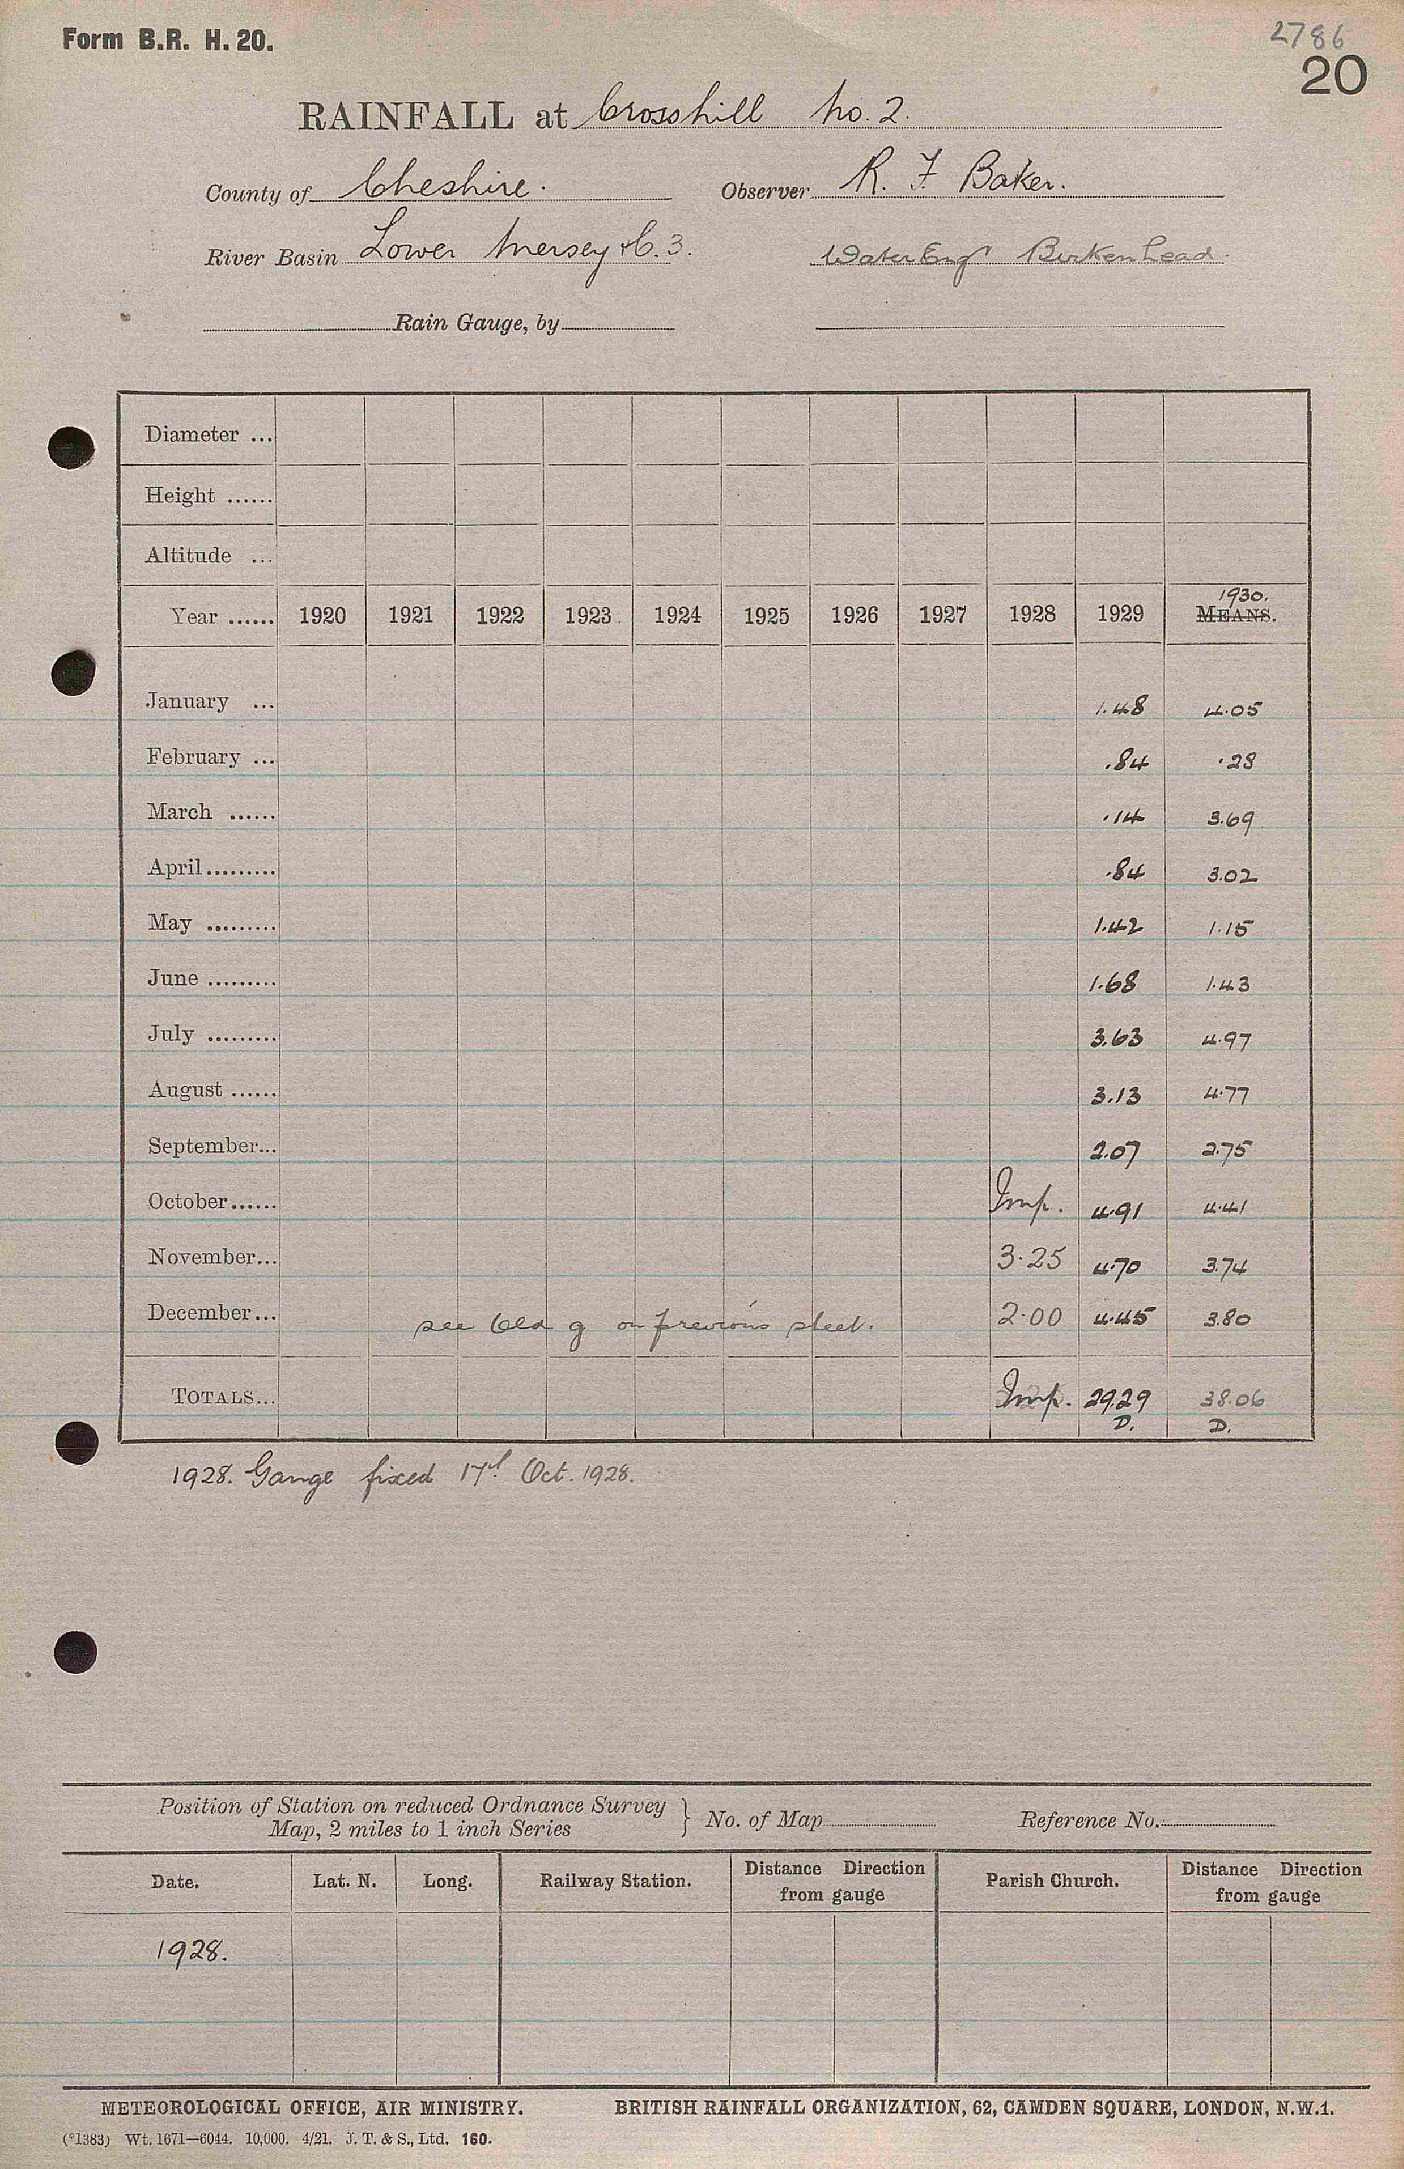 Form B.R. H. 20.
2786
20
RAINFALL at Crosshill No. 2.
County of Cheshire. Observer R. F. Baker.
River Basin Lower Mersey &c. 3. Water Engr Birkenhead.
Rain Gauge, by
Diameter ...
Height ......
Altitude ...
1930.
Year ...... 1920 1921 1922 1923 1924 1925 1926 1927 1928 1929 MEANS.
January ... 1.48 4.05
February ... .84 .28
March ...... .14 3.69
April ......... .84 3.02
May ......... 1.42 1.15
June ......... 1.68 1.43
July ......... 3.63 4.97
August ...... 3.13 4.77
September... 2.07 2.75
October ...... Imp. 4.91 4.41
November... 3.25 4.70 3.74
December... see Old g on previous sheet. 2.00 4.45 3.80
TOTALS... Imp. 29.29 38.06
D. D.
1928. Gauge fixed 17th Oct. 1928.
Position of Station on reduced Ordnance Survey
Map, 2 miles to 1 inch Series } No. of Map Reference No.
Date. Lat. N. Long. Railway Station. Distance Direction from gauge Parish Church. Distance Direction from gauge
1928.
METEOROLOGICAL OFFICE, AIR MINISTRY. BRITISH RAINFALL ORGANIZATION, 62, CAMDEN SQUARE, LONDON, N.W.1.
(*1383) Wt. 1671—6044. 10,000. 4/21. J. T. & S., Ltd. 160.